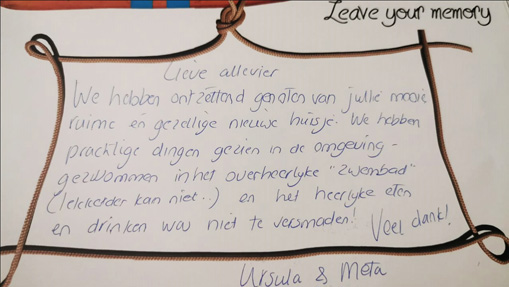 Leave your memory
Lieve allevier
We hebben ontzettend genoten van jullie mooie
ruime en gezellige nieuwe huisje. We hebben
prachtige dingen gezien in de omgeving -
gezwommen in het overheerlyke "zwembad"
(lekkerder kan niet..) en het heerlyke eten
en drinken was niet te versmaden!
Veel dank!
Ursula & Meta